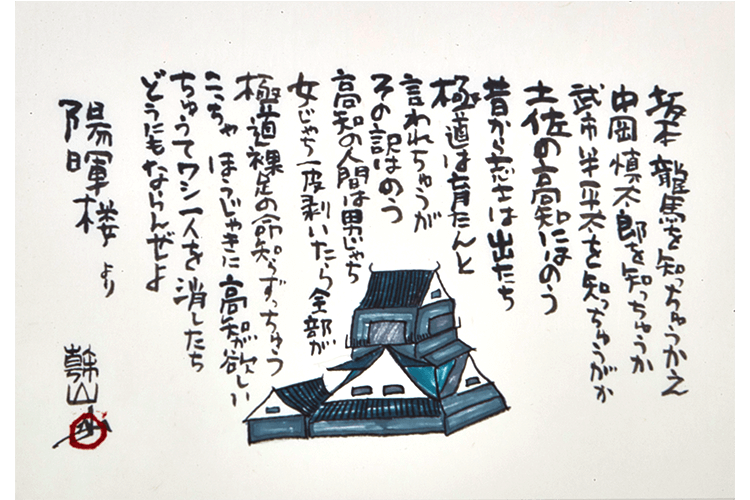 坂本龍馬を知っちゅうかえ
中岡慎太郎を知っちゅうか
武市半平太を知っちゅうがか
土佐の高知にはのう
昔から志士は出たち
極道は育たんと
言われちゅうが
その訳はのう
高知の人間は男じゃち
女じゃち一皮剥いたら全部が
極道裸足の命知らずっちゅう
こっちゃ ほうじゃきに 高知が欲しい
ちゅうてワシ一人を消したち
どうにもならんぜよ
陽暉楼 より